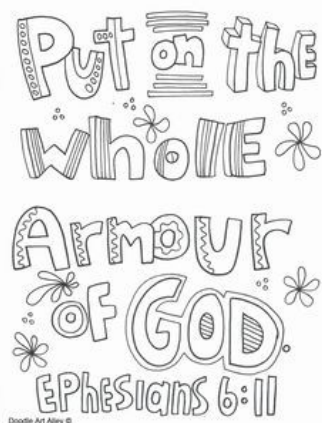 Put on the
whole
Armour
of GOD.
Ephesians 6:11
Doodle Art Alley ©